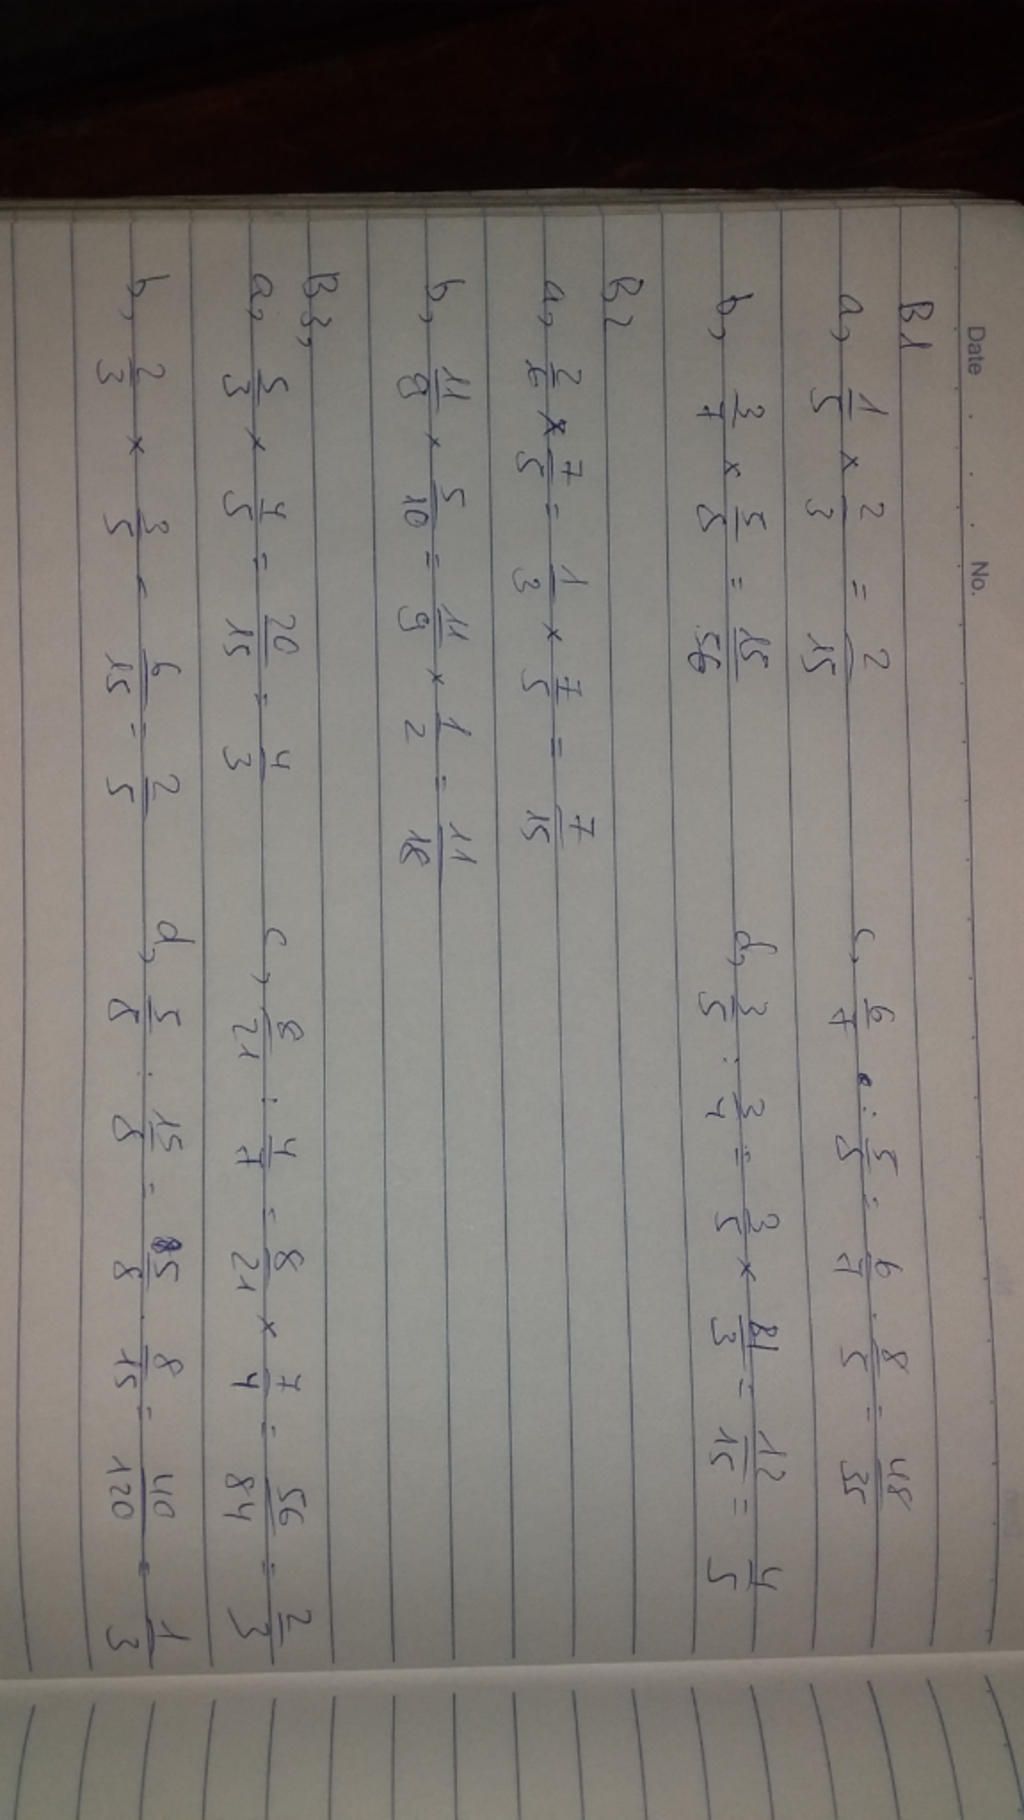 Date No.
B1
a, 1/5 × 2/3 = 2/15 c, 6/7 : 5/8 = 6/7 . 8/5 = 48/35
b, 3/7 × 5/8 = 15/56 d, 3/5 : 3/4 = 3/5 × 4/3 = 12/15 = 4/5
B2
a, 2/6 × 7/5 = 1/3 × 7/5 = 7/15
b, 11/9 × 5/10 = 11/9 × 1/2 = 11/18
B3,
a, 5/3 × 4/5 = 20/15 = 4/3 c, 8/21 : 4/7 = 8/21 × 7/4 = 56/84 = 2/3
b, 2/3 × 3/5 = 6/15 = 2/5 d, 5/8 : 15/8 = 5/8 . 8/15 = 40/120 = 1/3